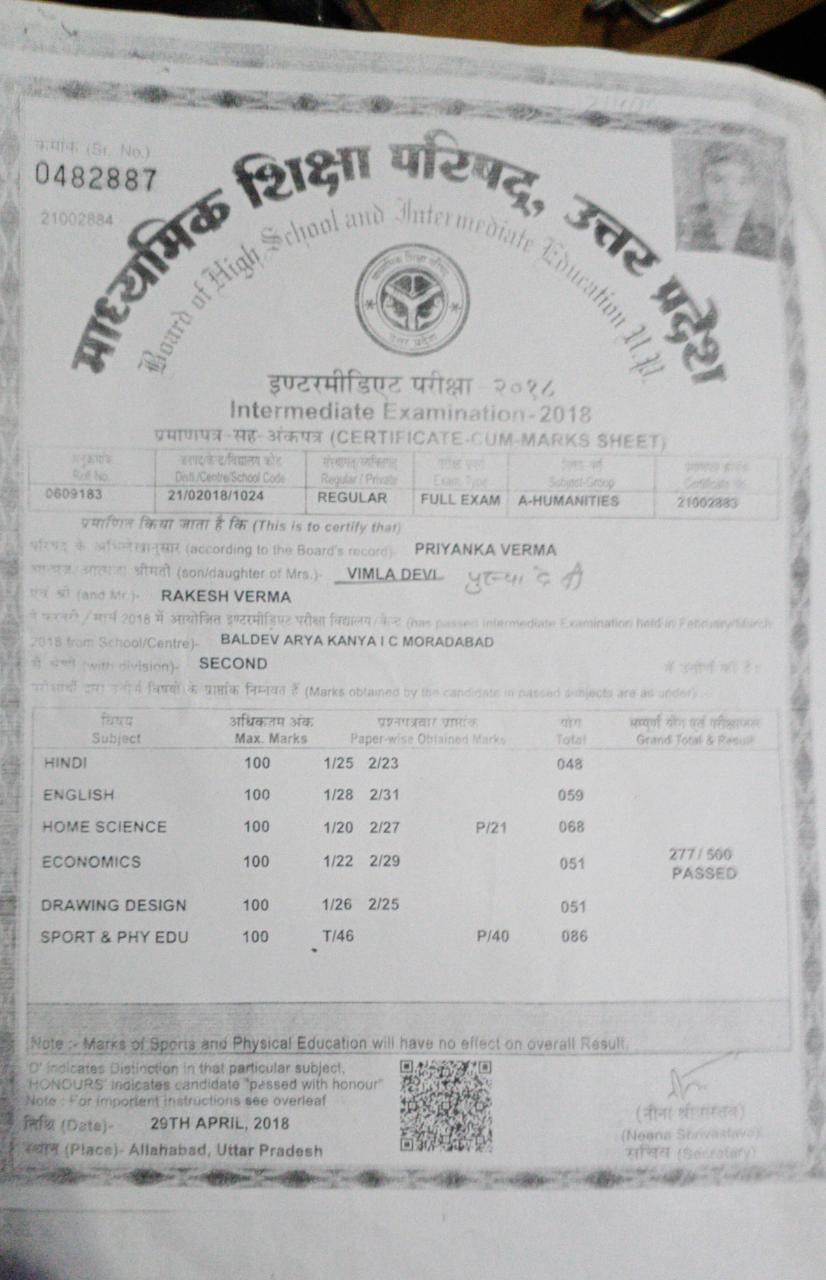 क्रमांक (Sr. No.)
0482887
21002884
माध्यमिक शिक्षा परिषद्, उत्तर प्रदेश
Board of High School and Intermediate Education U.P.
माध्यमिक शिक्षा परिषद्
उत्तर प्रदेश
इण्टरमीडिएट परीक्षा - २०१८
Intermediate Examination-2018
प्रमाणपत्र-सह-अंकपत्र (CERTIFICATE-CUM-MARKS SHEET)
अनुक्रमांक जनपद/केन्द्र/विद्यालय कोड संस्थागत/व्यक्तिगत
Roll No. Distt./Centre/School Code Regular / Private Exam. Type Subject-Group Certificate No.
0609183 21/02018/1024 REGULAR FULL EXAM A-HUMANITIES 21002883
प्रमाणित किया जाता है कि (This is to certify that)
परिषद के अभिलेखानुसार (according to the Board's record)- PRIYANKA VERMA
आत्मज/आत्मजा श्रीमती (son/daughter of Mrs.)- VIMLA DEVI
एवं श्री (and Mr.)- RAKESH VERMA
ने फरवरी/मार्च 2018 में आयोजित इण्टरमीडिएट परीक्षा विद्यालय/केन्द्र (has passed Intermediate Examination held in February/March
2018 from School/Centre)- BALDEV ARYA KANYA I C MORADABAD
में श्रेणी (with division)- SECOND में उत्तीर्ण की है।
परीक्षार्थी द्वारा उत्तीर्ण विषयों के प्राप्तांक निम्नवत हैं (Marks obtained by the candidate in passed subjects are as under) :-
विषय अधिकतम अंक प्रश्नपत्रवार प्राप्तांक योग सम्पूर्ण योग एवं परीक्षाफल
Subject Max. Marks Paper-wise Obtained Marks Total Grand Total & Result
HINDI 100 1/25 2/23 048
ENGLISH 100 1/28 2/31 059
HOME SCIENCE 100 1/20 2/27 P/21 068
ECONOMICS 100 1/22 2/29 051 277/500
PASSED
DRAWING DESIGN 100 1/26 2/25 051
SPORT & PHY EDU 100 T/46 P/40 086
Note :- Marks of Sports and Physical Education will have no effect on overall Result.
'D' indicates Distinction in that particular subject,
'HONOURS' indicates candidate "passed with honour"
Note : For important instructions see overleaf
तिथि (Date)- 29TH APRIL, 2018
स्थान (Place)- Allahabad, Uttar Pradesh
(नीना श्रीवास्तव)
(Neena Shrivastava)
सचिव (Secretary)